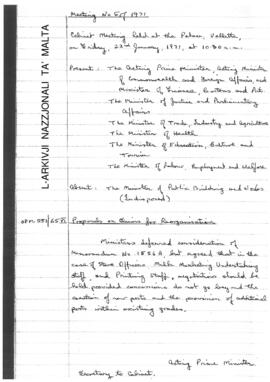 Meeting No 5 of 1971
Cabinet Meeting held at the Palace, Valletta,
on Friday, 22nd January, 1971, at 10.30 a.m.
Present: The Acting Prime Minister, Acting Minister
of Commonwealth and Foreign Affairs, and
Minister of Finance, Customs and Port.
The Minister of Justice and Parliamentary
Affairs
The Minister of Trade, Industry and Agriculture
The Minister of Health
The Minister of Education, Culture and
Tourism
The Minister of Labour, Employment and Welfare
Absent: The Minister of Public Building and Works
(Indisposed)
Proposals on Unions for Reorganisation
Ministers deferred consideration of
Memorandum No. 1556A, but agreed that in the
case of Store Officers Malta Marketing Undertaking
Staff, and Printing Staff, negotiations should be
held provided concessions do not go beyond the
creation of new posts and the provision of additional
posts within existing grades.
Acting Prime Minister
Secretary to Cabinet.
L-ARKIVJI NAZZJONALI TA' MALTA